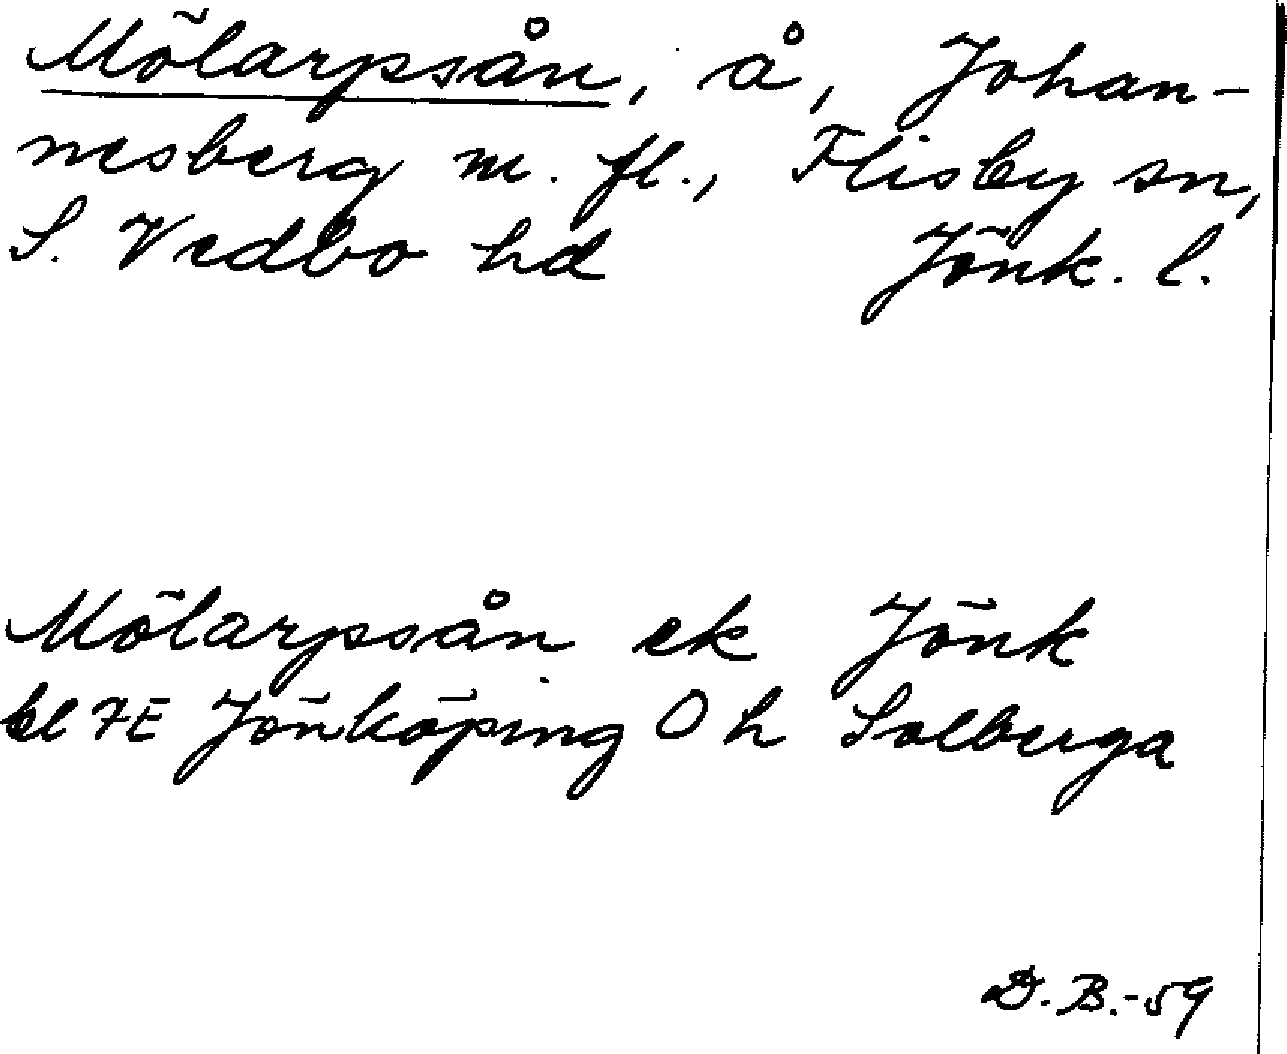 Mölarpsån, å, Johan-
nesberg m. fl., Flisby sn,
S. Vedbo hd Jönk. l.
Mölarpsån ek Jönk
bl 7E Jönköping Oh Solberga
D.B.-59